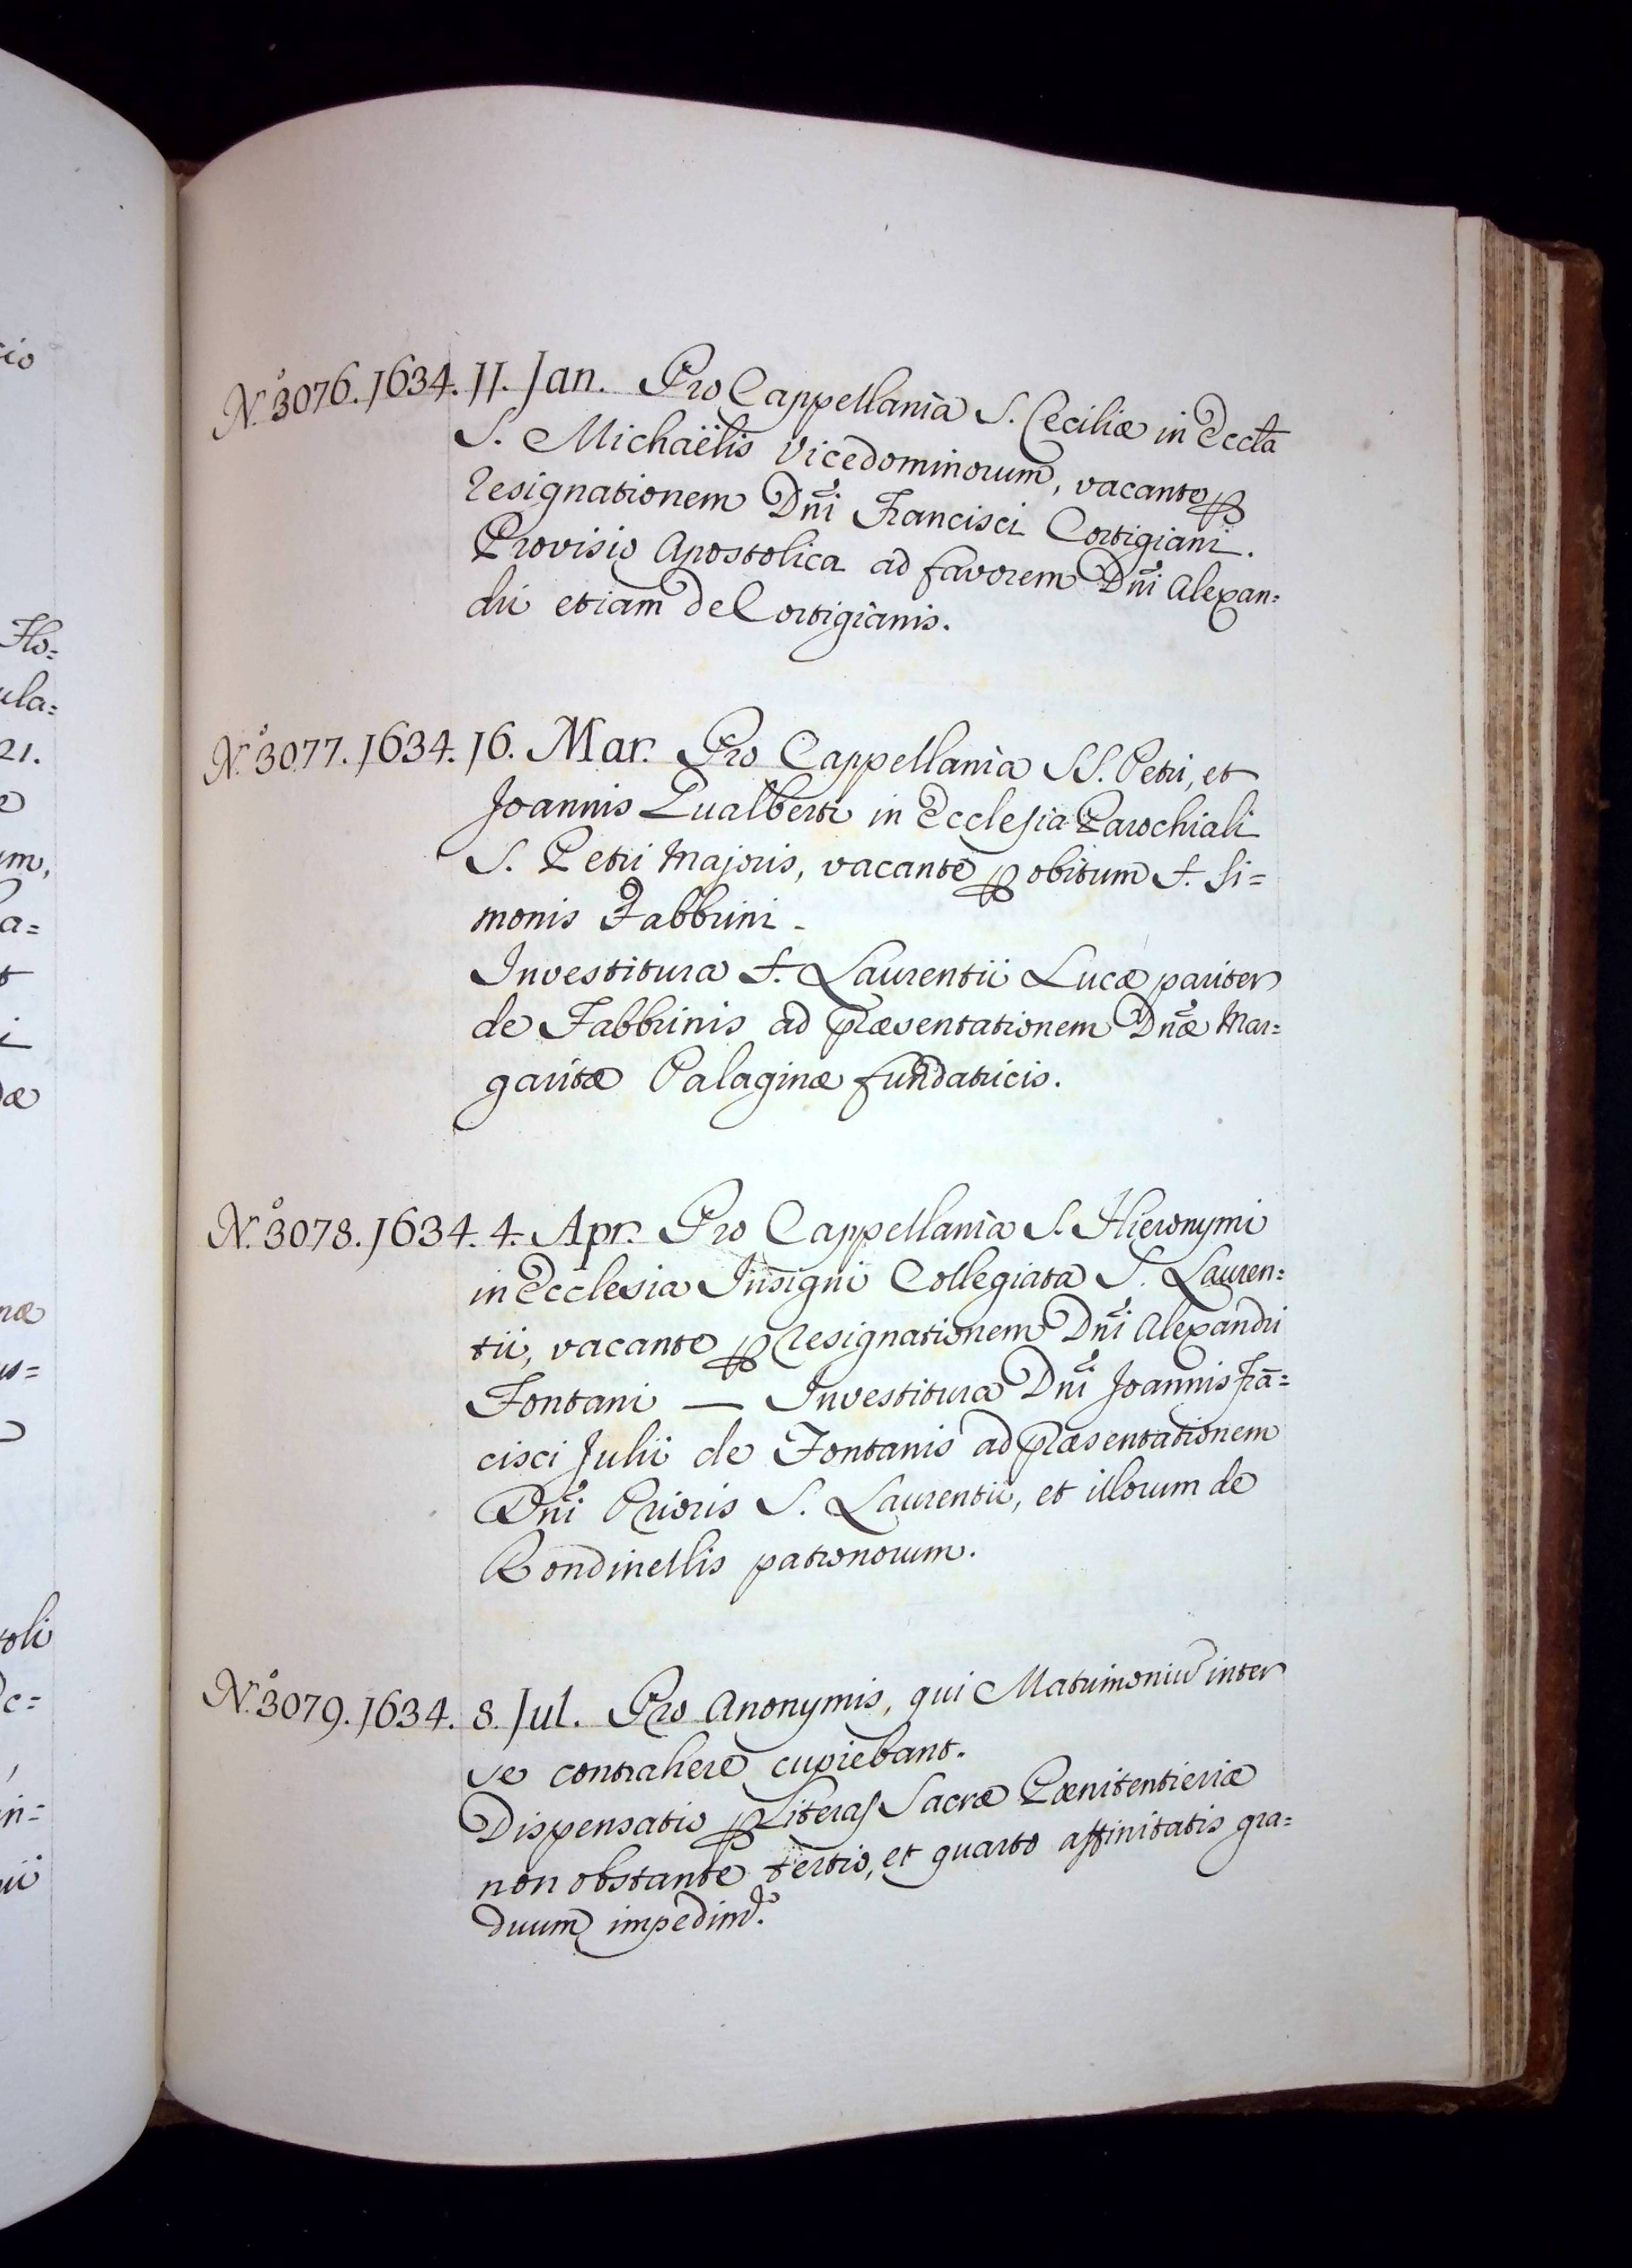 cio
Flo=
ula=
21.
e
um,
a=
t
i
dæ
næ
us=
o
toli
De=
,
in=
uii
N.º 3076. 1634. 11. Jan. Pro Cappellanìa S. Ceciliæ in Eccl̃a
S. Michaëlis Vicedominorum, vacante ꝑ
resignationem Dñi Francisci Cortigiani.
Provisio Apostolica ad favorem Dñi Alexan=
dri etiam de Cortigianis.
N.º 3077. 1634. 16. Mar. Pro Cappellanìa SS. Petri, et
Joannis Gualberti in Ecclesia Parochiali
S. Petri Majoris, vacante ꝑ obitum f. Si=
monis Fabbrini.
Investitura f. Laurentii Lucæ pariter
de Fabbrinis ad præsentationem Dñæ Mar=
garitæ Palaginæ fundatricis.
N.º 3078. 1634. 4. Apr. Pro Cappellanìa S. Hieronymi
in Ecclesia Insigni Collegiata S. Lauren=
tii, vacante ꝑ resignationem Dñi Alexandri
Fontani — Investitura Dñi Joannis Frā=
cisci Julii de Fontanis ad præsentationem
Dñi Prioris S. Laurentii, et illorum de
Rondinellis patronorum.
N.º 3079. 1634. 8. Jul. Pro Anonymis, qui Matrimoniū inter
se contrahere cupiebant.
Dispensatio ꝑ Literas Sacræ Pœnitentieriæ
non obstante tertio, et quarto affinitatis gra=
duum impedim.º